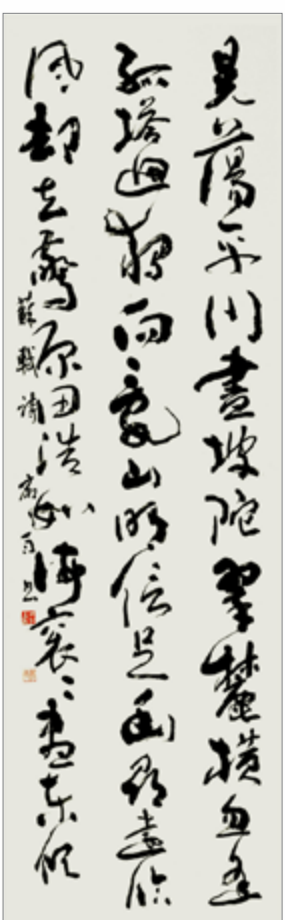 晃蕩平川盡坡陀翠麓橫忽逢
孤塔迥獨向亂山明信足幽尋遠臨
風却立驚原田浩如海衮々盡東傾
蘇軾詩